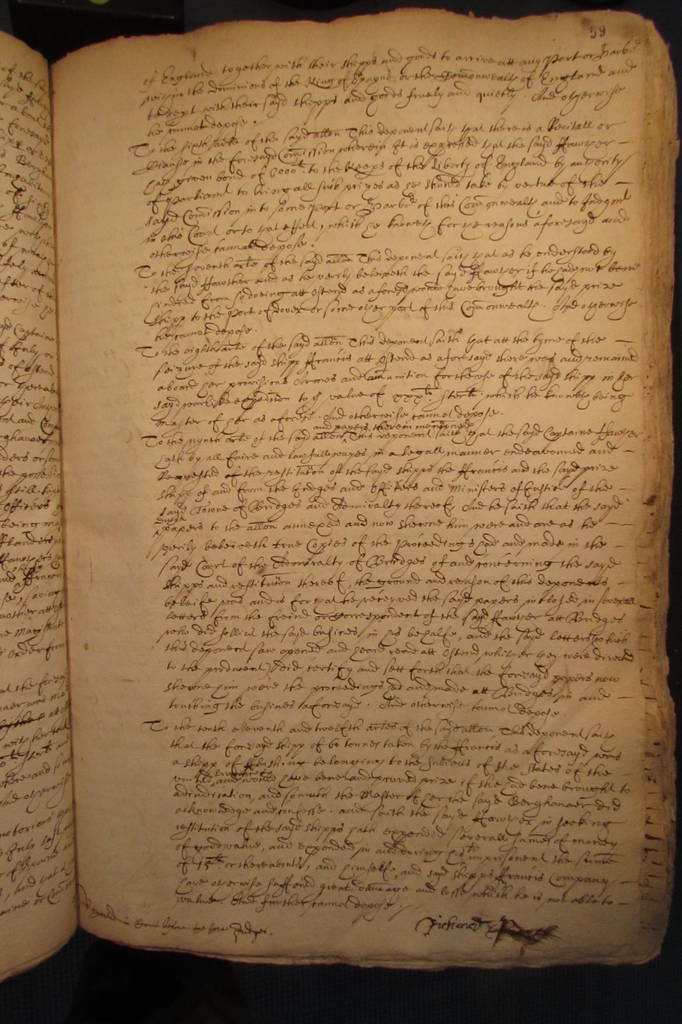 59
of England together with their shipps and goods to arrive att any Port or Harbor
within the dominions of the King of Spayne, or the Commonwealth of England and
to dept with their said shipps and goods freely and quietly. And otherwise
he cannot depose.
To the sixth arle of the sayd allon This deponent saith that there is a Recitall or
Clause in the foresayd Commission wherein it is expressed that the sayd Hawter
hath given bond of to the Keepers of the Liberty of England by authority
of Parliament to bring all such prizes as he should take by vertue of the
sayd Comission into some port or Harbor of this Commonwealth and to
in this Court or to that effect, which he knoweth for the reasons aforesayd And
otherwise cannot depose.
To the seaventh arle of the said allon This deponent saith that as he understood by
the said Hawther and as he verily beleiveth the sayd Hawter if he had not been
hindred from soe doeing att Ostend as aforesaid would have brought the said prize
shipp to the Port of Dover or some other port of this Commonwealth. And otherwise
he cannot depose.
To the eighth arle of the said allon This deponent saith that at the tyme of the
seizure of the sayd shipp Francis att Ostend as aforesayd there were and remained
aboard her provisions Clothes and ammunition for the use of the said shipp in her
said to the value of xxx li sterl which he knoweth being
Master of her as aforesd. And otherwise cannot depose.
and papers therein mentioned
To the nynth arle of the said allon This deponent saith that the sayd Captaine Hawter
hath by all faire and lawfull wayes in a legall manner endeavoured and
requested the restitution of the sayd shipps the Francis and the sayd prize
shipp of and from the Judges and Officers and Ministers of Justice of the
sayd Towne of Bridges and Admiralty thereof And he saith that the sayd
papers to the allon annexed and now shewne him were and are as he
verily beleeveth true Copies of the Proceedings had and made in the
said Court of the Admiralty of Bridges of and concerning the said
shipps and restitution thereof, the ground and reason of this deponents
beleife was and is for that he received the said papers inclosed in severall
letters from the freind or correspondent of the sayd Hawter att Bridges
who did sollicit the said busines in his behalfe, and the said letters which
this deponent saw opened and heard read att Ostend whither they were directed
to the producent did certify and sett forth that the foresayd papers now
shewne him were the proceedings had and made att Bridges in and
touching the busines aforesayd. And otherwise cannot depose
To the tenth eleventh and twelfth arles of the sayd allon This deponent saith
that the foresayd shipp of 60 tonnes taken by the Francis as aforesayd was
a shipp of belonging to the Subjects of the States of the
have bene adjudged prize if she had bene brought to
adjudication, and soe much the Master of her the sayd Berghanaer did
acknowledge and confesse. And saith the sayd Hawter in seeking
restitution of the said shipps hath expended severall sumes of money
of good value, and expended in and during his imprisonmt the summe
of 15 li or thereabouts and himselfe, and said shipps Francis Company
have otherwise suffered great damage and losse which he is not able to
value. And further cannot depose.
Richard